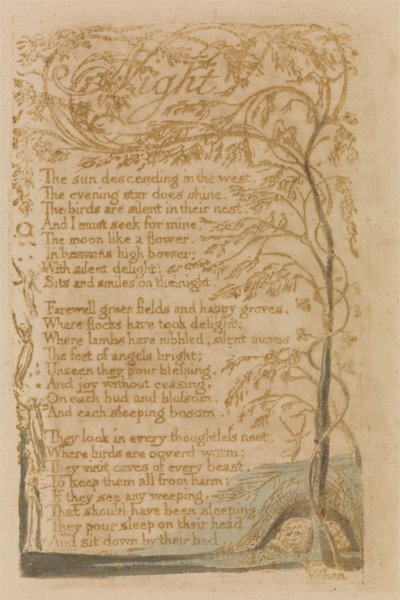 Night
The sun descending in the west.
The evening star does shine.
The birds are silent in their nest.
And I must seek for mine.
The moon like a flower.
In heavens high bower;
With silent delight.
Sits and smiles on the night.
Farewell green fields and happy groves.
Where flocks have took delight;
Where lambs have nibbled, silent moves
The feet of angels bright;
Unseen they pour blessing.
And joy without ceasing.
On each bud and blossom.
And each sleeping bosom.
They look in every thoughtless nest.
Where birds are coverd warm;
They visit caves of every beast.
To keep them all from harm;
If they see any weeping.
That should have been sleeping
They pour sleep on their head
And sit down by their bed.
When